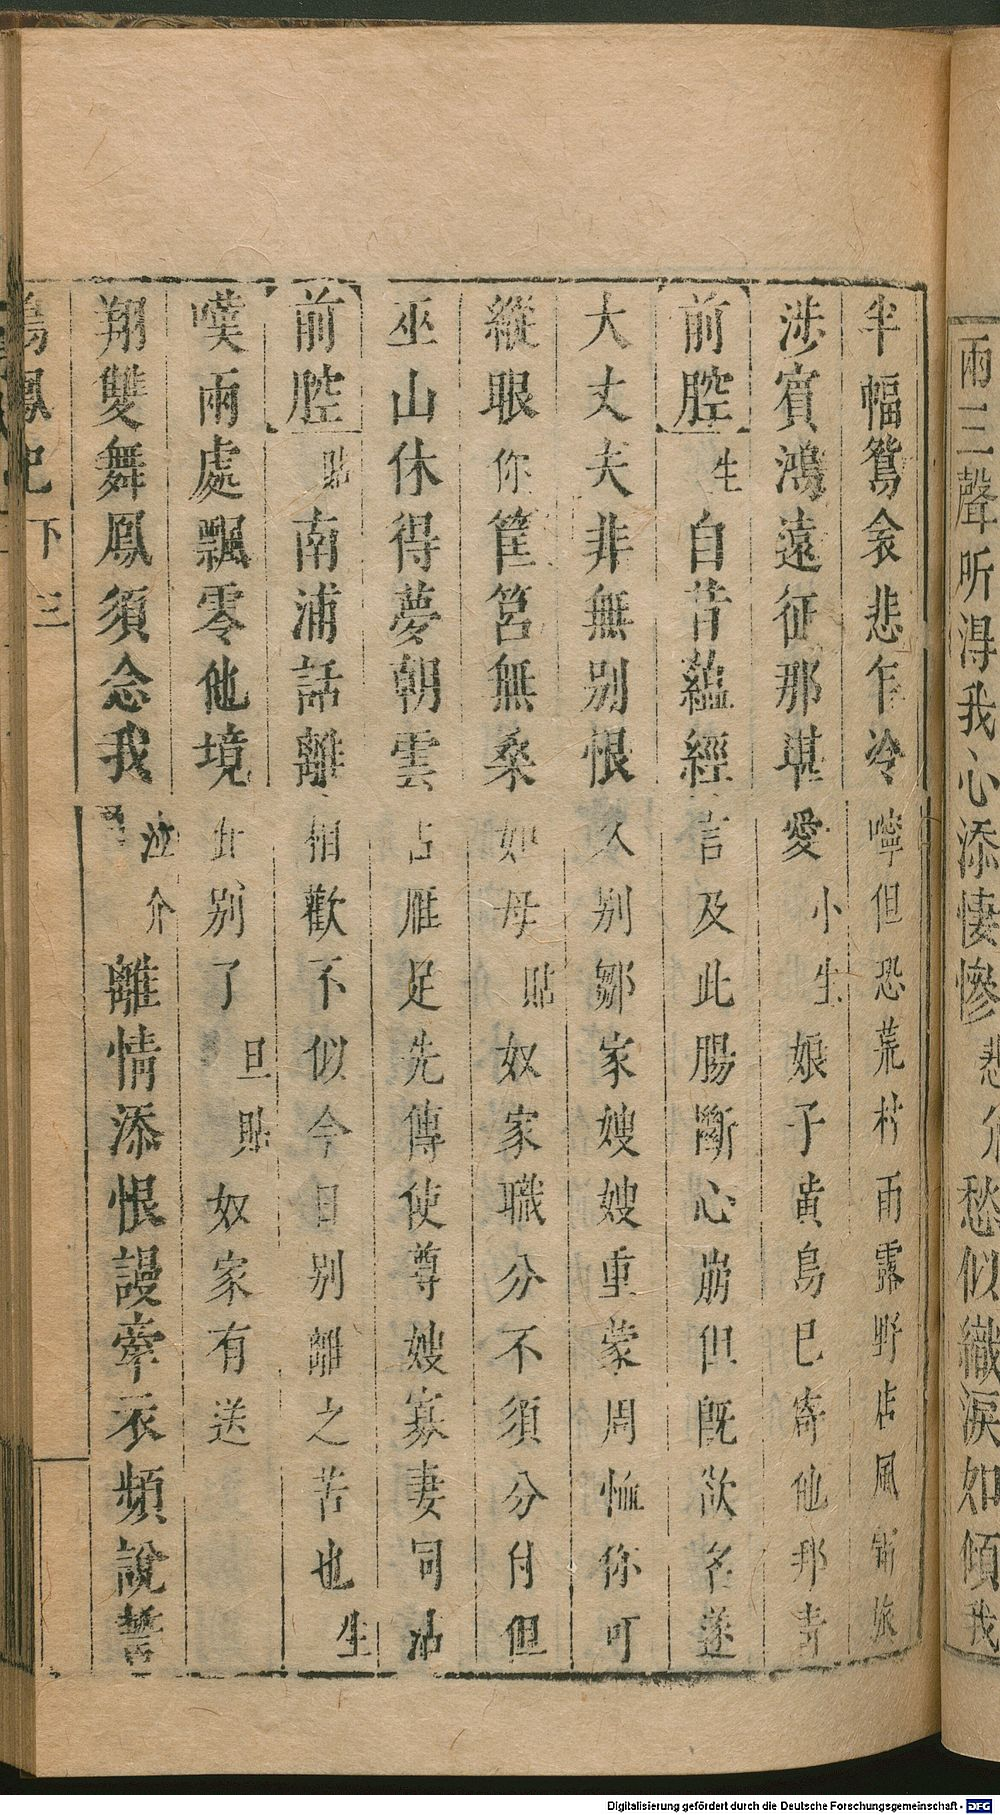 兩三聲听得我心添悽慘悲介愁似織淚如傾我
半幅鴛衾悲乍冷嚀但恐荒村雨露野店風霜旅
涉賓鴻遠征那堪愛小生娘子黃鳥已寄他邦青
前腔生自昔蘊經言及此腸斷心崩但既欲名遂
大丈夫非無別恨人別鄒家嫂嫂重蒙周恤你叮
縱眼你筐筥無桑如母貼奴家職分不須分付但
巫山休得夢朝雲占雁足先傳使尊嫂寡妻同沾
前腔貼南浦話離相歡不似今日別離之苦也生
嘆兩處飄零他境此別了旦貼奴家有送
翔雙舞鳳須念我泣介離情添恨謾牽衣頻說誓
鳴鳳記下三
Digitalisierung gefördert durch die Deutsche Forschungsgemeinschaft - DFG